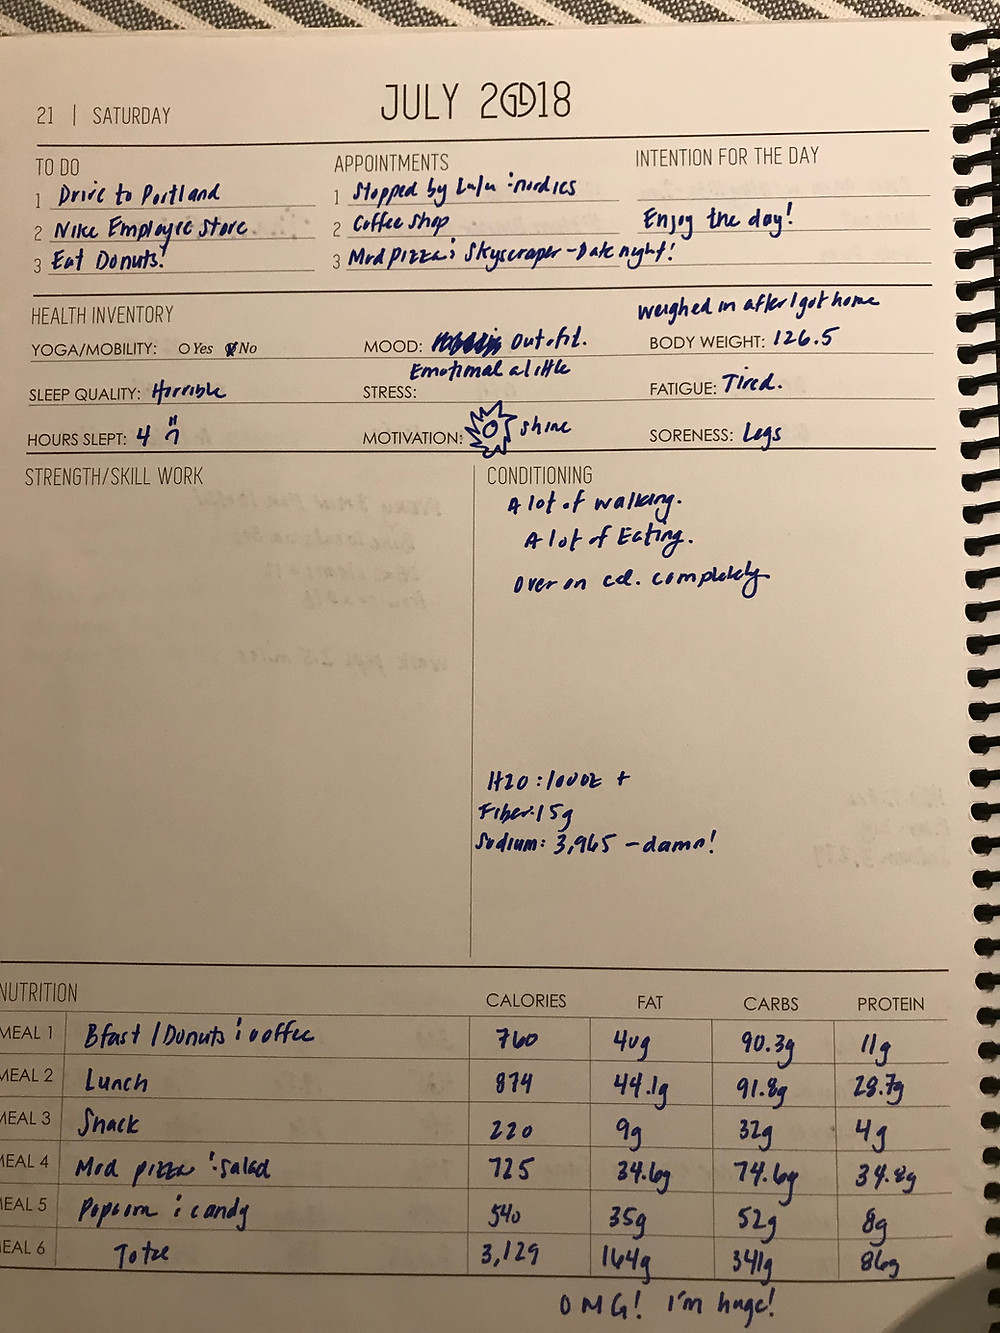 21 | SATURDAY
JULY 2018
TO DO
1 Drive to Portland
2 Nike Employee Store.
3 Eat Donuts!
APPOINTMENTS
1 Stopped by Lulu : nordies
2 Coffee shop
3 Mod Pizza : Skyscraper - Date night!
INTENTION FOR THE DAY
Enjoy the day!
HEALTH INVENTORY
weighed in after I got home
YOGA/MOBILITY: Yes No
MOOD: Out of it.
BODY WEIGHT: 126.5
Emotional a little
SLEEP QUALITY: Horrible
STRESS:
FATIGUE: Tired.
HOURS SLEPT: 4
MOTIVATION: shine
SORENESS: Legs
STRENGTH/SKILL WORK
CONDITIONING
A lot of walking.
A lot of Eating.
Over on cal. completely
H2O : 100oz +
Fiber: 15g
Sodium: 3,965 - damn!
NUTRITION CALORIES FAT CARBS PROTEIN
MEAL 1 Bfast / Donuts : coffee 760 40g 90.3g 11g
MEAL 2 Lunch 874 44.1g 91.8g 28.7g
MEAL 3 Snack 220 9g 32g 4g
MEAL 4 Mod pizza : salad 725 34.6g 74.6g 34.8g
MEAL 5 Popcorn : candy 540 35g 52g 8g
MEAL 6 Total 3,129 164g 341g 86g
OMG! I'm huge!